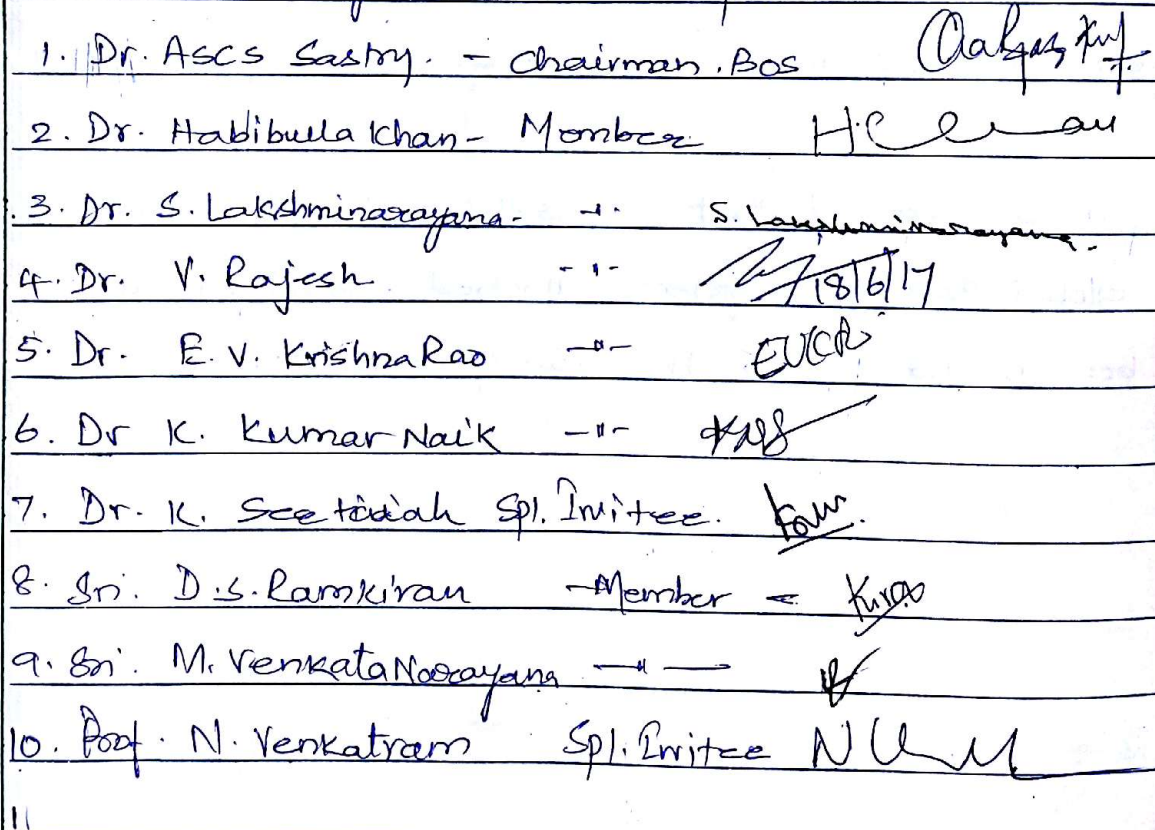 1. Dr. ASCS Sastry. - Chairman. BOS
2. Dr. Habibulla Khan - Member
3. Dr. S. Lakshminarayana - -"- S. Lakshminarayana.
4. Dr. V. Rajesh -"- 18/6/17
5. Dr. E. V. Krishna Rao -"- EVKR
6. Dr K. Kumar Naik -"-
7. Dr. K. Seetaiah Spl. Invitee.
8. Sri. D.S. Ramkiran - Member - Kiran
9. Sri. M. Venkata Narayana -"-
10. Prof. N. Venkatram Spl. Invitee
11